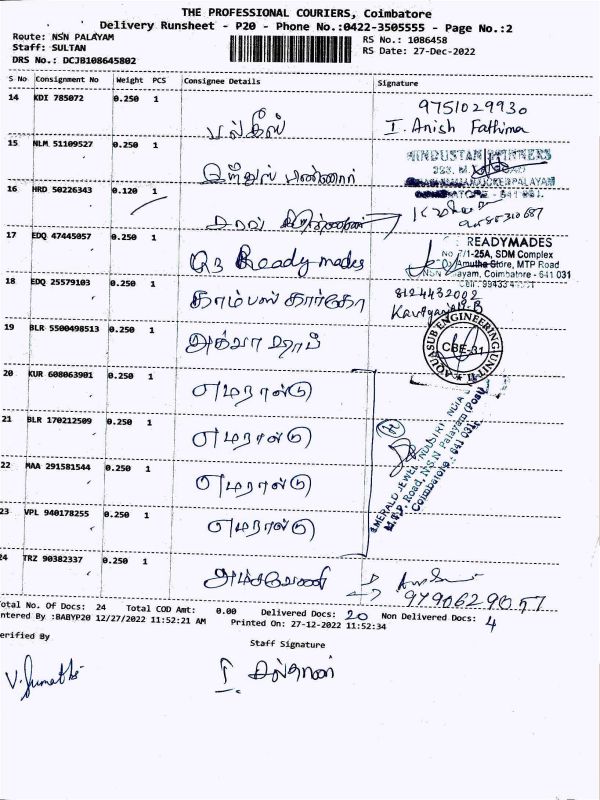 THE PROFESSIONAL COURIERS, Coimbatore
Delivery Runsheet - P20 - Phone No.:0422-3505555 - Page No.:2
Route: NSN PALAYAM
Staff: SULTAN
DRS No.: DCJB108645802
RS No.: 1086458
RS Date: 27-Dec-2022
S No Consignment No Weight PCS Consignee Details Signature
14 KDI 785072 0.250 1 பல்கீஸ் 9751029930
I. Anish Fathima
15 NLM 51109527 0.250 1
HINDUSTAN
16 HRD 50226343 0.120 1
17 EDQ 47445057 0.250 1 Q3 Ready mades
READYMADES
No.7/1-25A, SDM Complex
Amutha Store, MTP Road
Coimbatore - 641 031
18 EDQ 25579103 0.250 1 காம்பஸ் கார்கோ 8124432002
19 BLR 5500498513 0.250 1 அக்வா சப்
AQUASUB ENGINEERING UNIT II
CBE-31
20 KUR 608063901 0.250 1 எமரால்டு
21 BLR 170212509 0.250 1 எமரால்டு
22 MAA 291581544 0.250 1 எமரால்டு
23 VPL 940178255 0.250 1 எமரால்டு
EMERALD JEWEL INDUSTRY INDIA
M.T.P. Road, N.S.N Palayam (Post)
Coimbatore - 641 031.
24 TRZ 90382337 0.250 1 அம்சவேணி 9790629057
Total No. Of Docs: 24 Total COD Amt: 0.00 Delivered Docs: 20 Non Delivered Docs: 4
Entered By :BABYP20 12/27/2022 11:52:21 AM Printed On: 27-12-2022 11:52:34
Verified By Staff Signature
V. Sumathi I. சுல்தான்